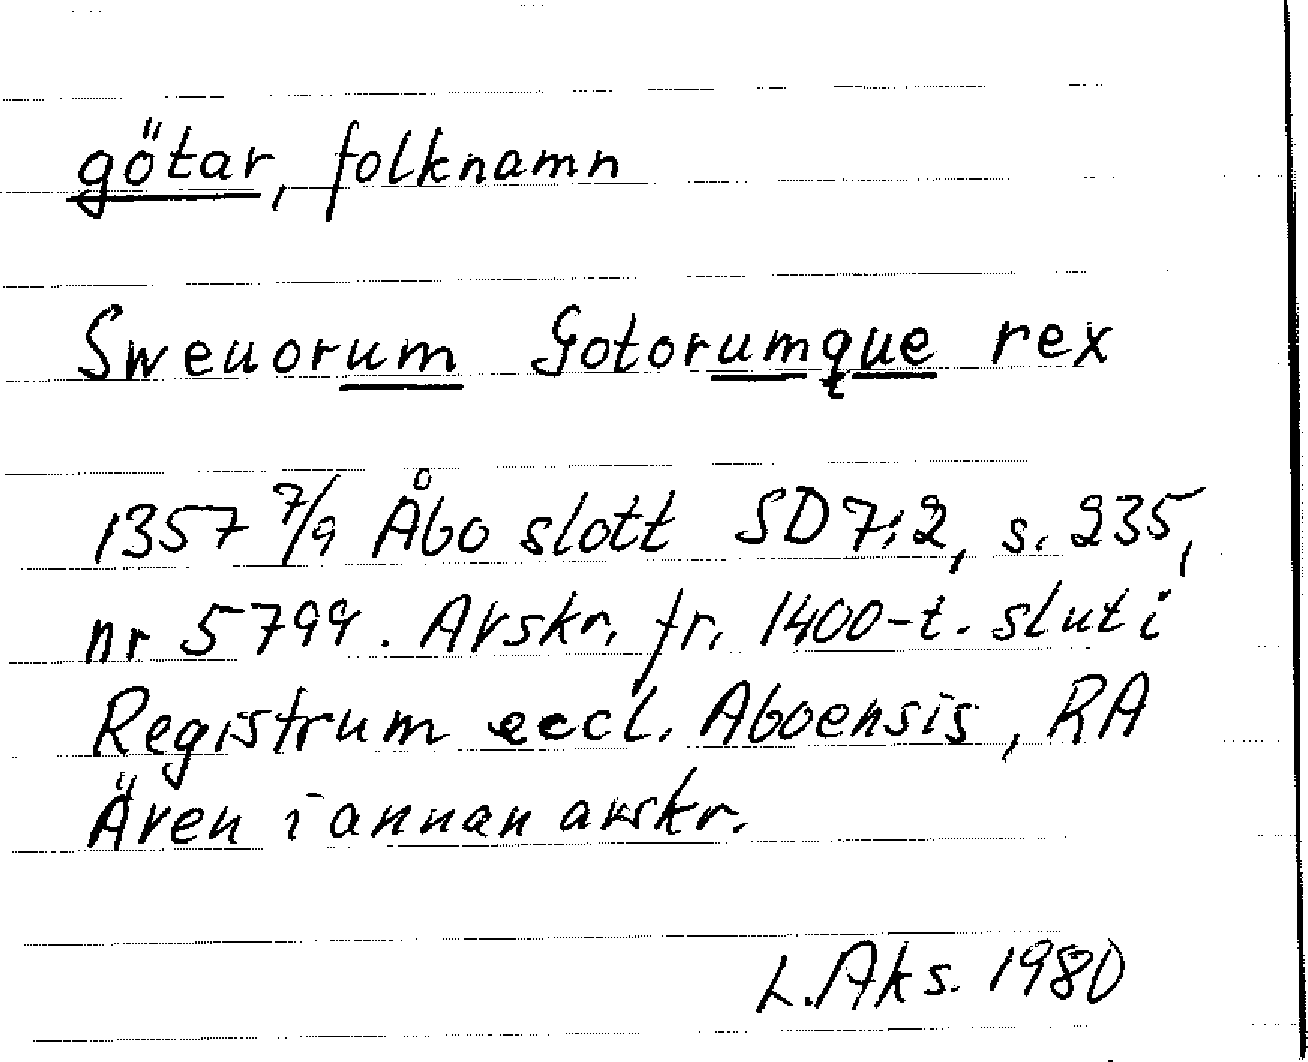 götar, folknamn
Sweuorum Gotorumque rex
1357 7/9 Åbo slott SD 7:2, s. 235,
nr 5799. Avskr. fr. 1400-t. slut i
Registrum eccl. Aboensis, RA
Även i annan avskr.
L. Aks. 1980